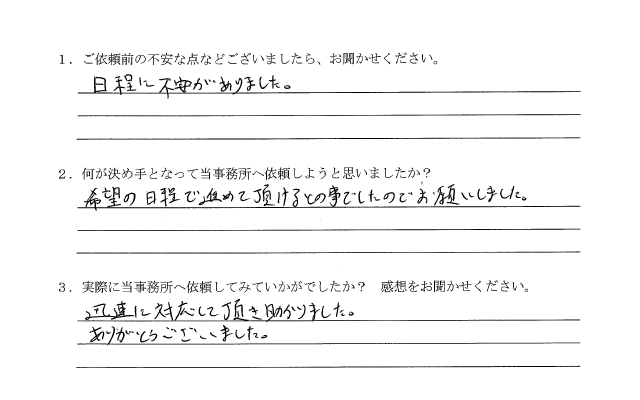 1．ご依頼前の不安な点などございましたら、お聞かせください。
日程に不安がありました。
2．何が決め手となって当事務所へ依頼しようと思いましたか？
希望の日程で進めて頂けるとの事でしたのでお願いしました。
3．実際に当事務所へ依頼してみていかがでしたか？　感想をお聞かせください。
迅速に対応して頂き助かりました。
ありがとうございました。